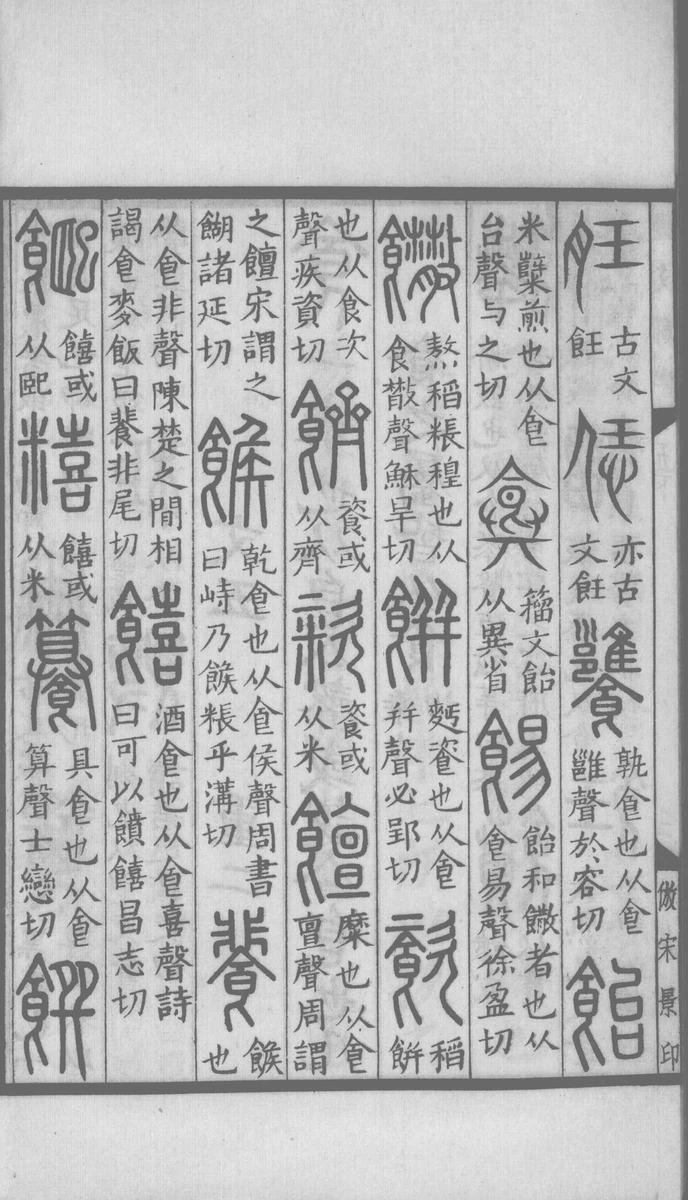 𦙫古文飪恁亦古文飪饔孰食也从食雝聲於容切飴
米糱煎也从食台聲与之切籒文飴从異省餳飴和饊者也从食易聲徐盈切
饊熬稻粻䅣也从食散聲穌旱切餅麪餈也从食幷聲必郢切餈稻餅
也从食次聲疾資切餈或从齊餈或从米饘糜也从食亶聲周謂
之饘宋謂之餬諸延切餱乾食也从食侯聲周書曰峙乃餱粻乎溝切餥餱也
从食非聲陳楚之閒相謁食麥飯曰餥非尾切饎酒食也从食喜聲詩曰可以饋饎昌志切
饎或从巸糦饎或从米籑具食也从食算聲士戀切饌
倣宋景印